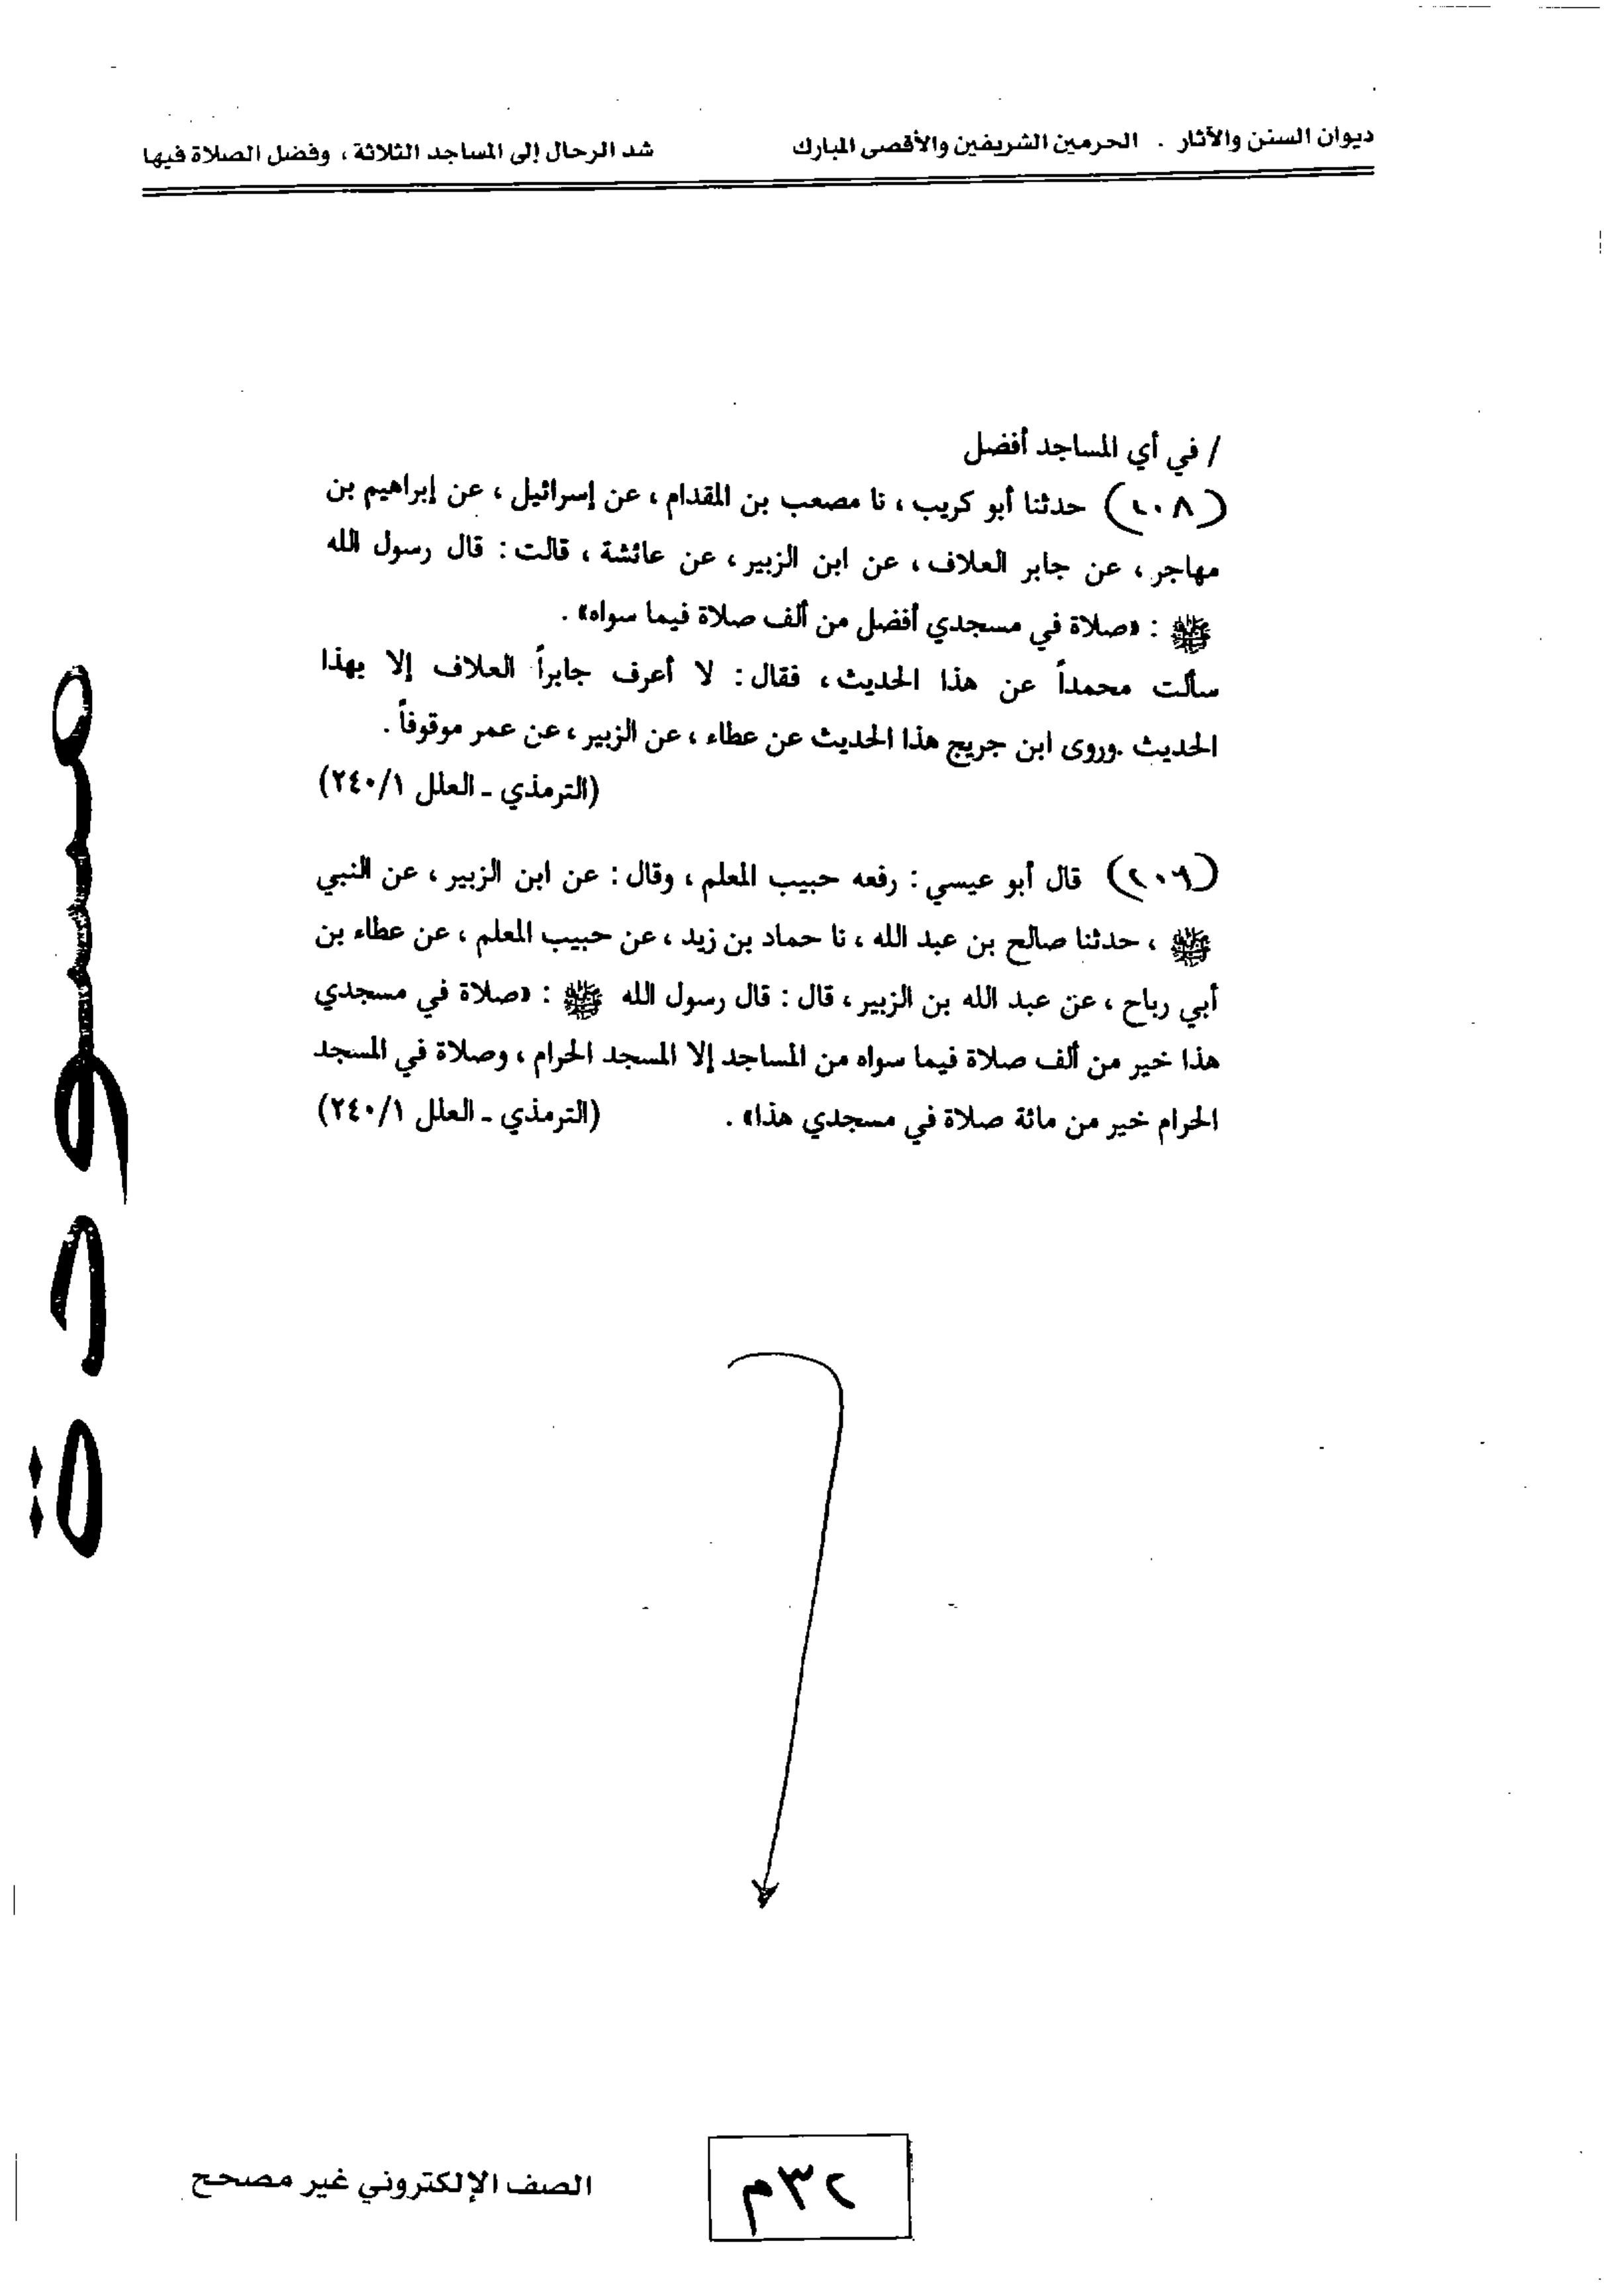 ديوان السنن والآثار . الحرمين الشريفين والأقصى المبارك شد الرحال إلى المساجد الثلاثة ، وفضل الصلاة فيها
/ في أي المساجد أفضل
(٢٠٨) حدثنا أبو كريب ، نا مصعب بن المقدام ، عن إسرائيل ، عن إبراهيم بن
مهاجر ، عن جابر العلاف ، عن ابن الزبير ، عن عائشة ، قالت : قال رسول الله
ﷺ : «صلاة في مسجدي أفضل من ألف صلاة فيما سواه» .
سألت محمداً عن هذا الحديث ، فقال : لا أعرف جابراً العلاف إلا بهذا
الحديث .وروى ابن جريج هذا الحديث عن عطاء ، عن الزبير ، عن عمر موقوفاً .
(الترمذي ـ العلل ٢٤٠/١)
(٢٠٩) قال أبو عيسي : رفعه حبيب المعلم ، وقال : عن ابن الزبير ، عن النبي
ﷺ ، حدثنا صالح بن عبد الله ، نا حماد بن زيد ، عن حبيب المعلم ، عن عطاء بن
أبي رباح ، عن عبد الله بن الزبير ، قال : قال رسول الله ﷺ : «صلاة في مسجدي
هذا خير من ألف صلاة فيما سواه من المساجد إلا المسجد الحرام ، وصلاة في المسجد
الحرام خير من مائة صلاة في مسجدي هذا» . (الترمذي ـ العلل ٢٤٠/١)
مسودة
٢٣م
الصف الإلكتروني غير مصحح